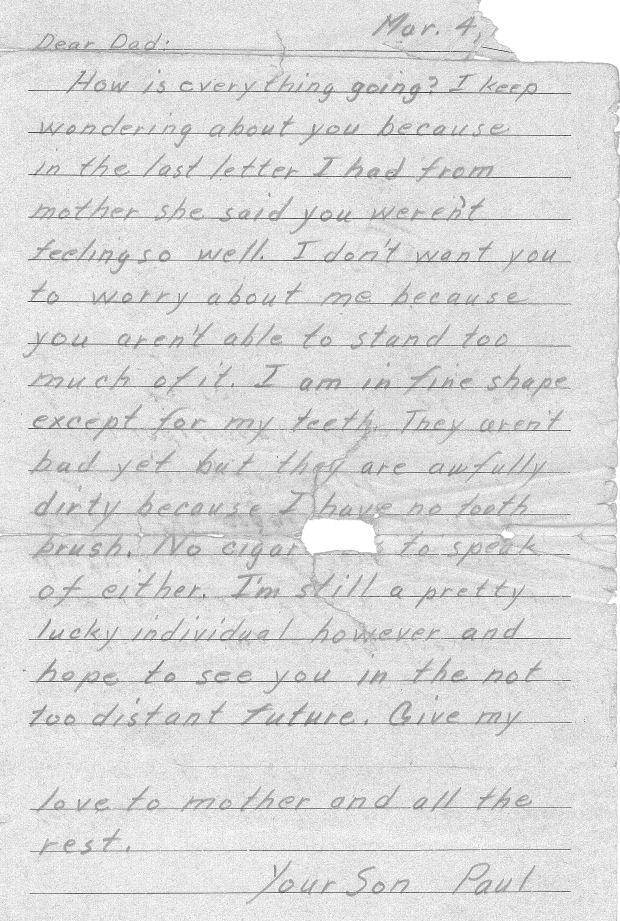 Mar. 4,
Dear Dad:
How is everything going? I keep
wondering about you because
in the last letter I had from
mother she said you weren't
feeling so well. I don't want you
to worry about me because
you aren't able to stand too
much of it. I am in fine shape
except for my teeth. They aren't
bad yet but they are awfully
dirty because I have no tooth
brush. No cigar to speak
of either. I'm still a pretty
lucky individual however and
hope to see you in the not
too distant future. Give my
love to mother and all the
rest.
Your Son Paul